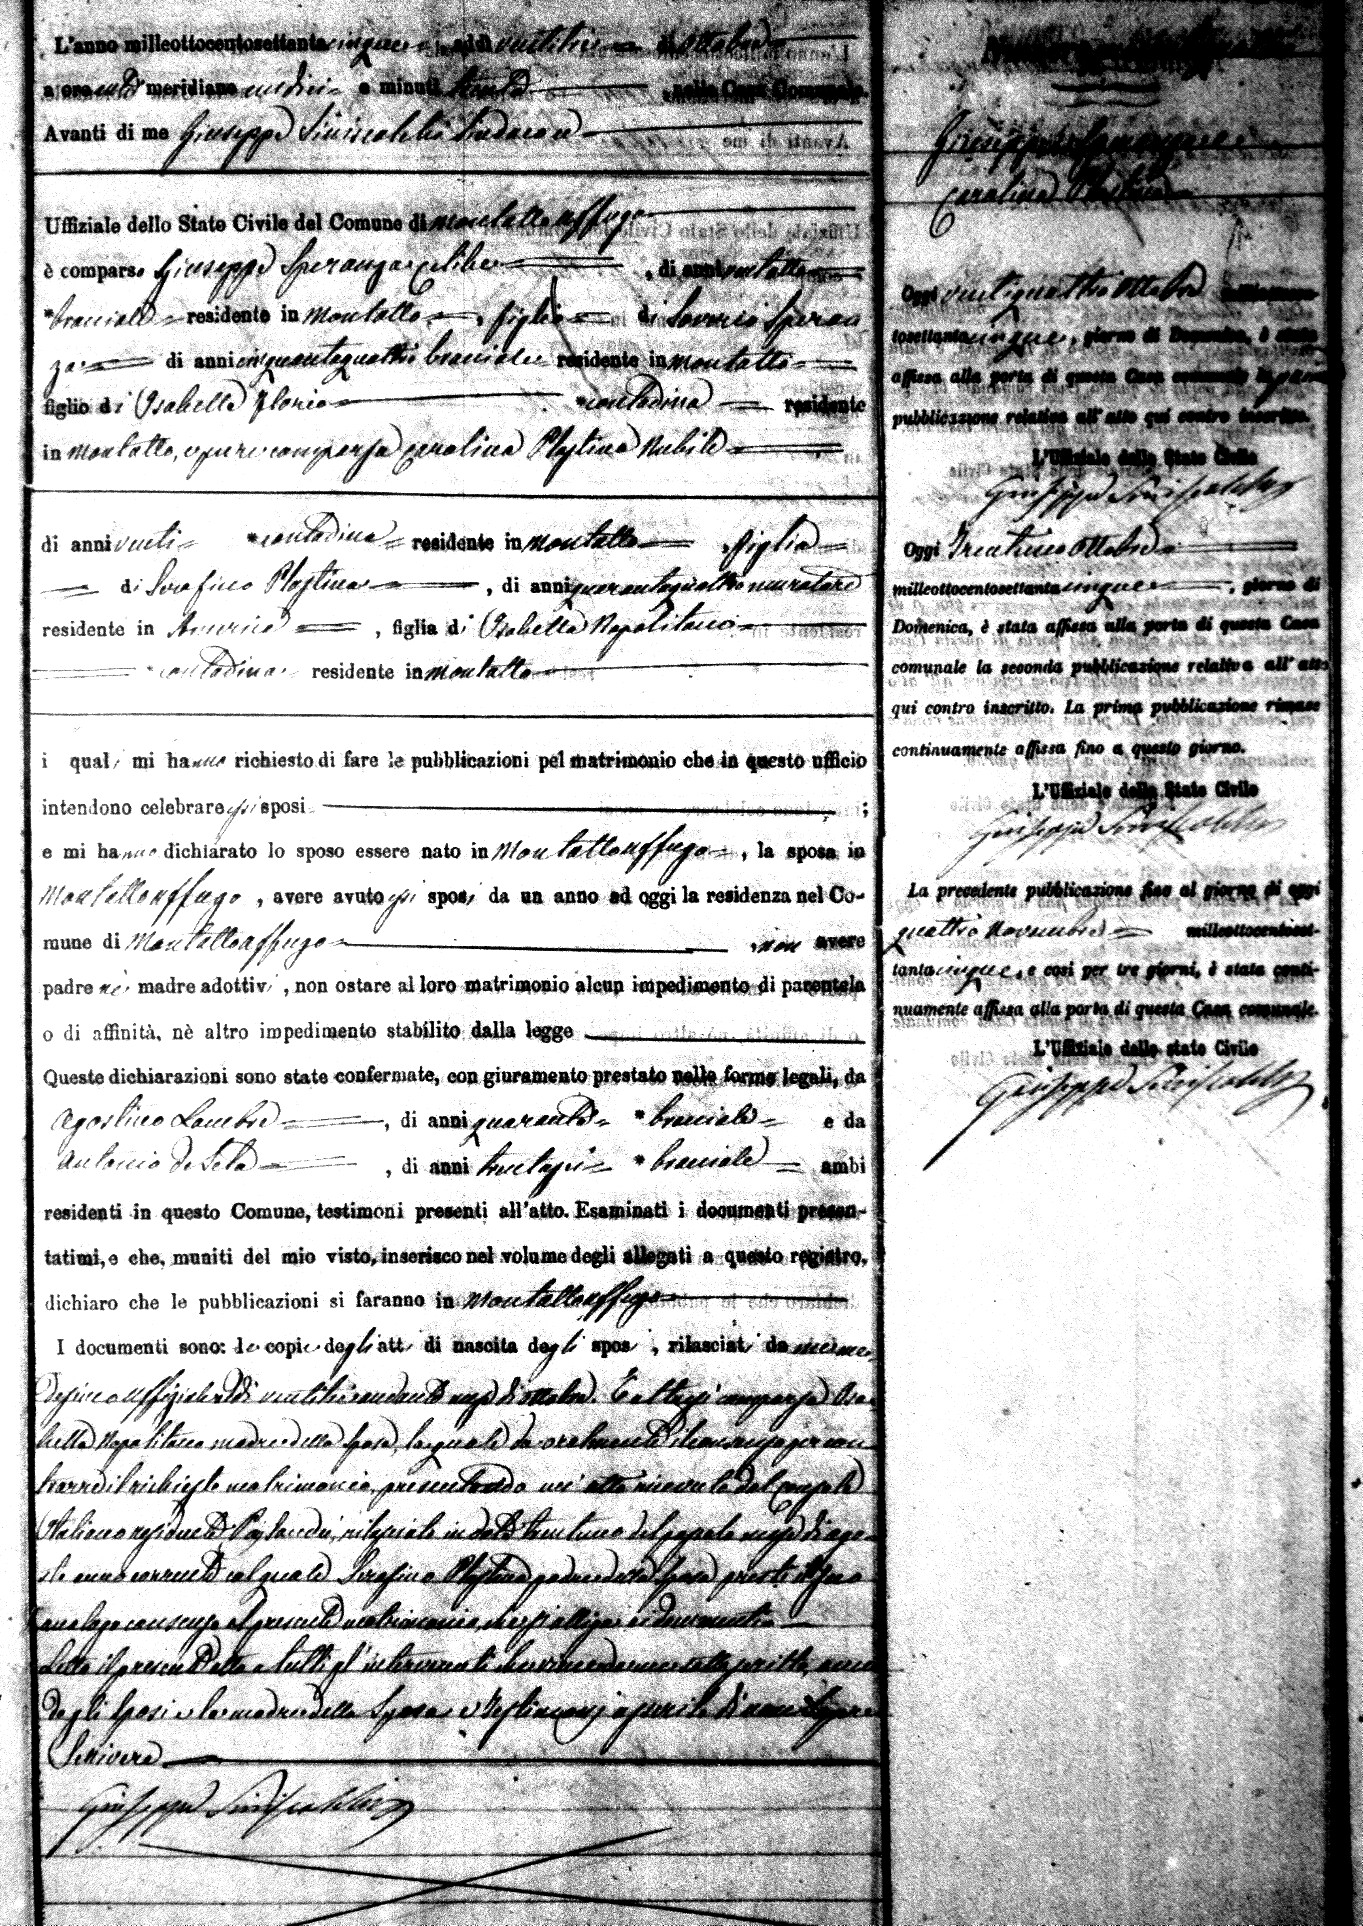 L'anno milleottocentosettantacinque, addì ventitre di Ottobre
a ore anti meridiane undici e minuti trenta, nella Casa Comunale.
Avanti di me Giuseppe Siniscalchi Sindaco
Uffiziale dello Stato Civile del Comune di Montalto Uffugo
è comparso Giuseppe Speranza celibe, di anni ventotto
bracciale residente in Montalto, figlio di Saverio Speran
za di anni cinquantaquattro bracciale residente in Montalto
figlio di Isabella Florio contadina residente
in Montalto, e pure comparsa Carolina Plastina Nubile
di anni venti contadina residente in Montalto figlia
di Serafino Plastina, di anni quarantaquattro muratore
residente in America, figlia di Isabella Napolitano
contadina residente in Montalto
i quali mi hanno richiesto di fare le pubblicazioni pel matrimonio che in questo ufficio
intendono celebrare essi sposi ;
e mi hanno dichiarato lo sposo essere nato in Montalto Uffugo, la sposa in
Montalto Uffugo, avere avuto essi sposi da un anno ad oggi la residenza nel Co-
mune di Montalto Uffugo, non avere
padre nè madre adottivi, non ostare al loro matrimonio alcun impedimento di parentela
o di affinità, nè altro impedimento stabilito dalla legge
Queste dichiarazioni sono state confermate, con giuramento prestato nelle forme legali, da
Agostino Lambre, di anni quaranta bracciale e da
Antonio de Seta, di anni trentasei bracciale ambi
residenti in questo Comune, testimoni presenti all'atto. Esaminati i documenti presen-
tatimi, e che, muniti del mio visto, inserisco nel volume degli allegati a questo registro,
dichiaro che le pubblicazioni si faranno in Montalto Uffugo
I documenti sono: le copie degli atti di nascita degli sposi, rilasciati da me me
desimo Uffiziale ventitre andante mese di Ottobre. E altresì comparsa Isa
bella Napolitano madre della sposa, la quale da oralmente il consenso per con
trarre il richiesto matrimonio, presentando un atto ricevuto dal Console
Italiano residente Paysandù, rilasciato in data trentuno del passato mese di ago
sto anno corrente col quale Serafino Plastina padre della sposa presta il suo
analogo consenso al presente matrimonio, che si alliga ai documenti
Letto il presente atto a tutti gl'intervenuti
degli sposi e la madre della sposa e Testimoni asserito di non sapere
Scrivere
Giuseppe Siniscalchi
Giuseppe Speranza
Carolina Plastina
Oggi ventiquattro Ottobre milleottocen-
tosettantacinque, giorno di Domenica, è stata
affissa alla porta di questa Casa comunale la prima
pubblicazione relativa all'atto qui contro inscritto.
L'Uffiziale dello Stato Civile
Giuseppe Siniscalchi
Oggi Trentuno Ottobre
milleottocentosettantacinque, giorno di
Domenica, è stata affissa alla porta di questa Casa
comunale la seconda pubblicazione relativa all'atto
qui contro inscritto. La prima pubblicazione rimase
continuamente affissa fino a questo giorno.
L'Uffiziale dello Stato Civile
Giuseppe Siniscalchi
La precedente pubblicazione fino al giorno di oggi
quattro Novembre milleottocentoset-
tantacinque, e così per tre giorni, è stata conti-
nuamente affissa alla porta di questa Casa comunale.
L'Uffiziale dello stato Civile
Giuseppe Siniscalchi